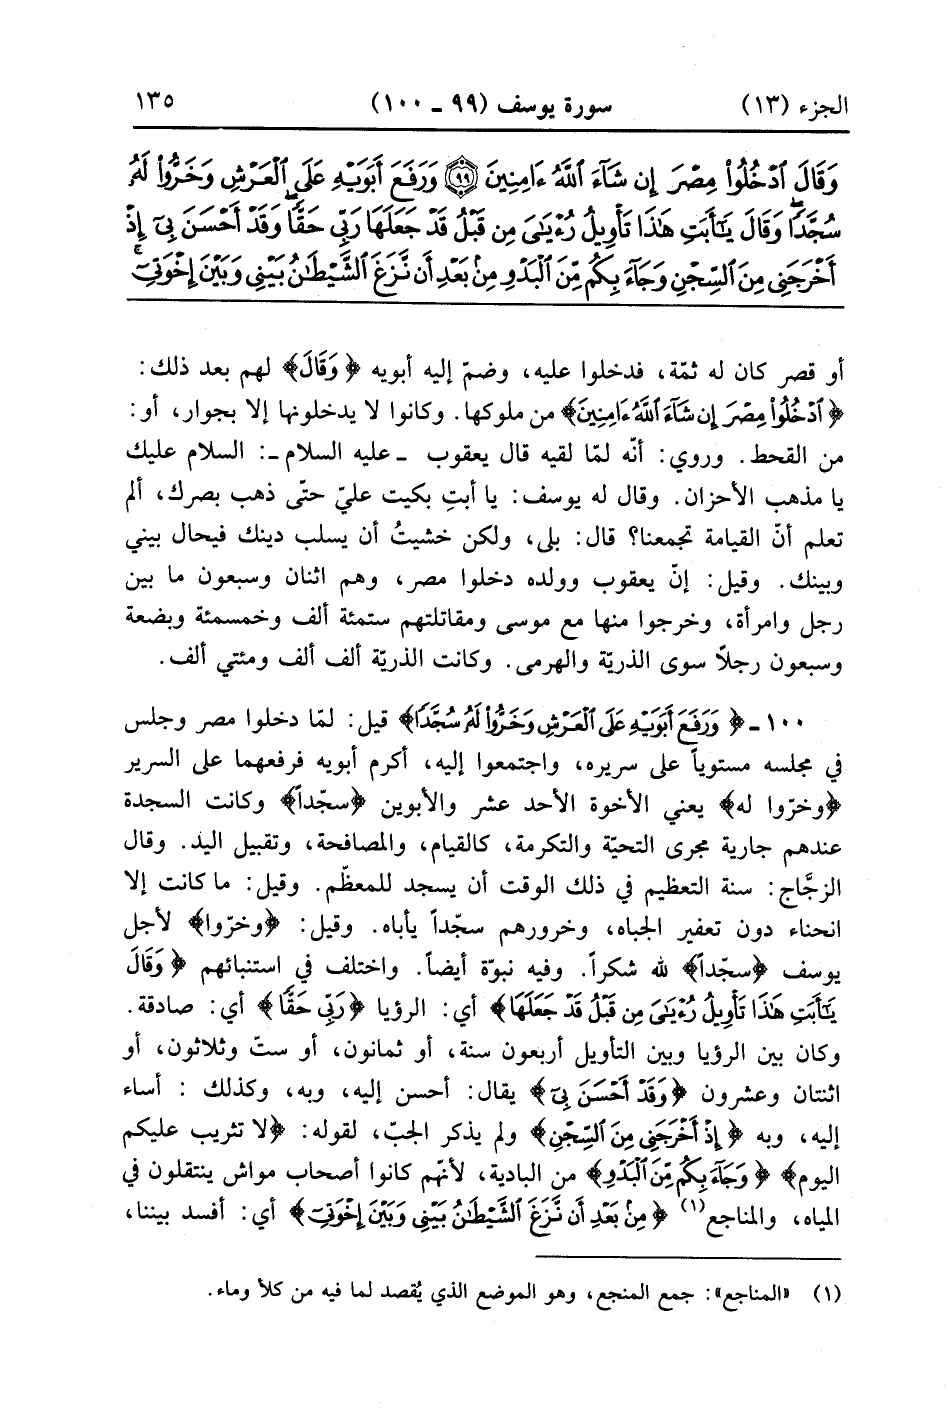 الجزء (١٣) سورة يوسف (٩٩ - ١٠٠) ١٣٥
وَقَالَ ٱدۡخُلُواْ مِصۡرَ إِن شَآءَ ٱللَّهُ ءَامِنِينَ ۝٩٩ وَرَفَعَ أَبَوَيۡهِ عَلَى ٱلۡعَرۡشِ وَخَرُّواْ لَهُۥ
سُجَّدٗاۖ وَقَالَ يَٰٓأَبَتِ هَٰذَا تَأۡوِيلُ رُءۡيَٰيَ مِن قَبۡلُ قَدۡ جَعَلَهَا رَبِّي حَقّٗاۖ وَقَدۡ أَحۡسَنَ بِيٓ إِذۡ
أَخۡرَجَنِي مِنَ ٱلسِّجۡنِ وَجَآءَ بِكُم مِّنَ ٱلۡبَدۡوِ مِنۢ بَعۡدِ أَن نَّزَغَ ٱلشَّيۡطَٰنُ بَيۡنِي وَبَيۡنَ إِخۡوَتِيٓۚ
أو قصر كان له ثمّة، فدخلوا عليه، وضمّ إليه أبويه ﴿وَقَالَ﴾ لهم بعد ذلك:
﴿ٱدۡخُلُواْ مِصۡرَ إِن شَآءَ ٱللَّهُ ءَامِنِينَ﴾ من ملوكها. وكانوا لا يدخلونها إلا بجوار، أو:
من القحط. وروي: أنّه لمّا لقيه قال يعقوب ـ عليه السلام ـ: السلام عليك
يا مذهب الأحزان. وقال له يوسف: يا أبتِ بكيت عليّ حتّى ذهب بصرك، ألم
تعلم أنّ القيامة تجمعنا؟ قال: بلى، ولكن خشيتُ أن يسلب دينك فيحال بيني
وبينك. وقيل: إنّ يعقوب وولده دخلوا مصر، وهم اثنان وسبعون ما بين
رجل وامرأة، وخرجوا منها مع موسى ومقاتلتهم ستمئة ألف وخمسمئة وبضعة
وسبعون رجلاً سوى الذريّة والهرمى. وكانت الذريّة ألف ألف ومئتي ألف.
١٠٠ ـ ﴿وَرَفَعَ أَبَوَيۡهِ عَلَى ٱلۡعَرۡشِ وَخَرُّواْ لَهُۥ سُجَّدٗا﴾ قيل: لمّا دخلوا مصر وجلس
في مجلسه مستوياً على سريره، واجتمعوا إليه، أكرم أبويه فرفعهما على السرير
﴿وخرّوا له﴾ يعني الأخوة الأحد عشر والأبوين ﴿سجّداً﴾ وكانت السجدة
عندهم جارية مجرى التحيّة والتكرمة، كالقيام، والمصافحة، وتقبيل اليد. وقال
الزجَّاج: سنة التعظيم في ذلك الوقت أن يسجد للمعظّم. وقيل: ما كانت إلا
انحناء دون تعفير الجباه، وخرورهم سجّداً يأباه. وقيل: ﴿وخرّوا﴾ لأجل
يوسف ﴿سجّداً﴾ لله شكراً. وفيه نبوّة أيضاً. واختلف في استنبائهم ﴿وَقَالَ
يَٰٓأَبَتِ هَٰذَا تَأۡوِيلُ رُءۡيَٰيَ مِن قَبۡلُ قَدۡ جَعَلَهَا﴾ أي: الرؤيا ﴿رَبِّي حَقّٗا﴾ أي: صادقة.
وكان بين الرؤيا وبين التأويل أربعون سنة، أو ثمانون، أو ستّ وثلاثون، أو
اثنتان وعشرون ﴿وَقَدۡ أَحۡسَنَ بِيٓ﴾ يقال: أحسن إليه، وبه، وكذلك : أساء
إليه، وبه ﴿إِذۡ أَخۡرَجَنِي مِنَ ٱلسِّجۡنِ﴾ ولم يذكر الجبّ، لقوله: ﴿لا تثريب عليكم
اليوم﴾ ﴿وَجَآءَ بِكُم مِّنَ ٱلۡبَدۡوِ﴾ من البادية، لأنّهم كانوا أصحاب مواش ينتقلون في
المياه، والمناجع(١) ﴿مِنۢ بَعۡدِ أَن نَّزَغَ ٱلشَّيۡطَٰنُ بَيۡنِي وَبَيۡنَ إِخۡوَتِيٓ﴾ أي: أفسد بيننا،
(١) «المناجع»: جمع المنجع، وهو الموضع الذي يُقصد لما فيه من كلأ وماء.